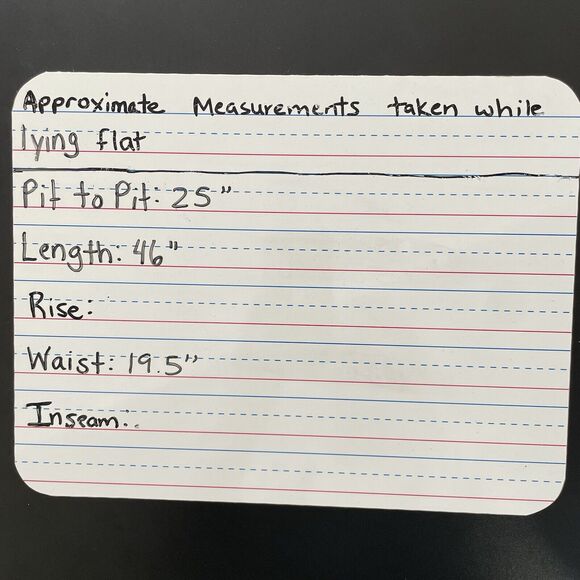 Approximate Measurements taken while
lying flat
Pit to Pit: 25"
Length: 46"
Rise:
Waist: 19.5"
Inseam: